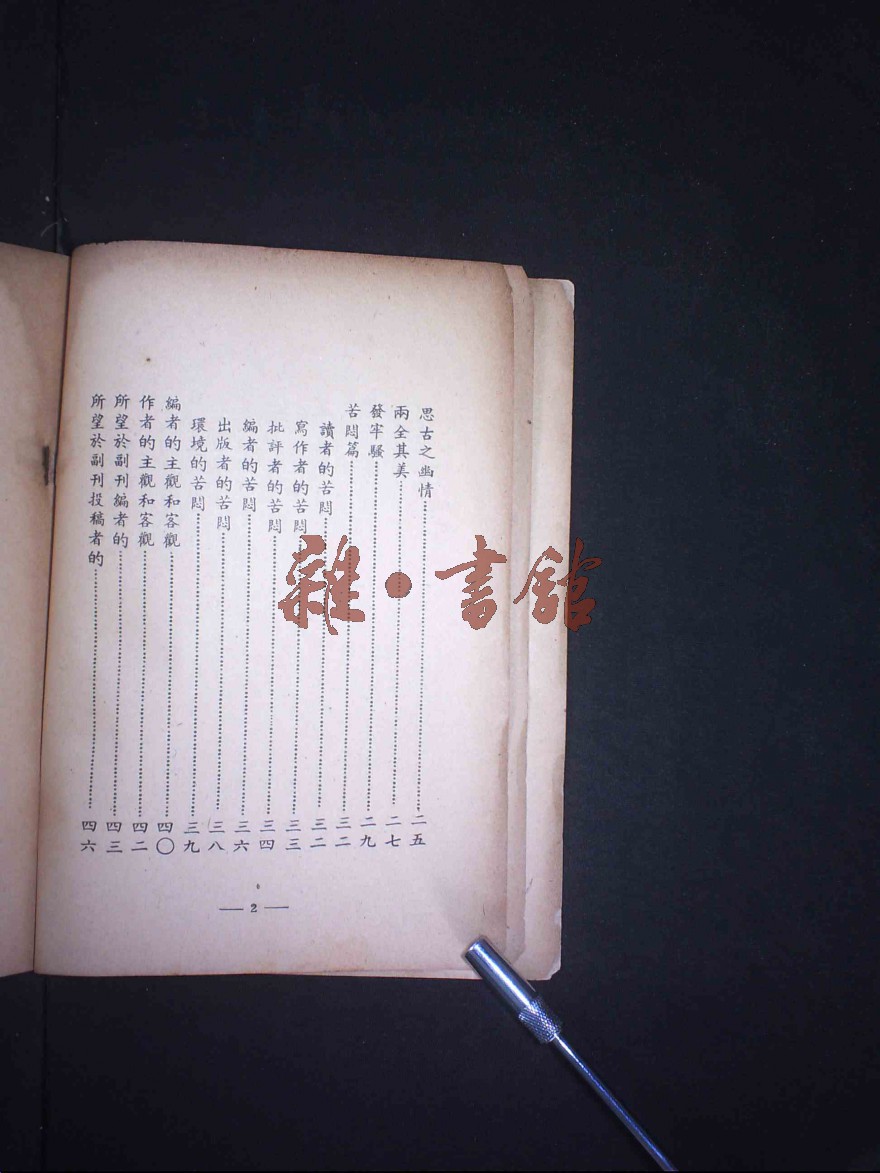 思古之幽情……二五
兩全其美……二七
發牢騷……二九
苦悶篇……三二
讀者的苦悶……三二
寫作者的苦悶……三三
批評者的苦悶……三四
編者的苦悶……三六
出版者的苦悶……三八
環境的苦悶……三九
編者的主觀和客觀……四〇
作者的主觀和客觀……四二
所望於副刊編者的……四三
所望於副刊投稿者的……四六
— 2 —
雜·書館